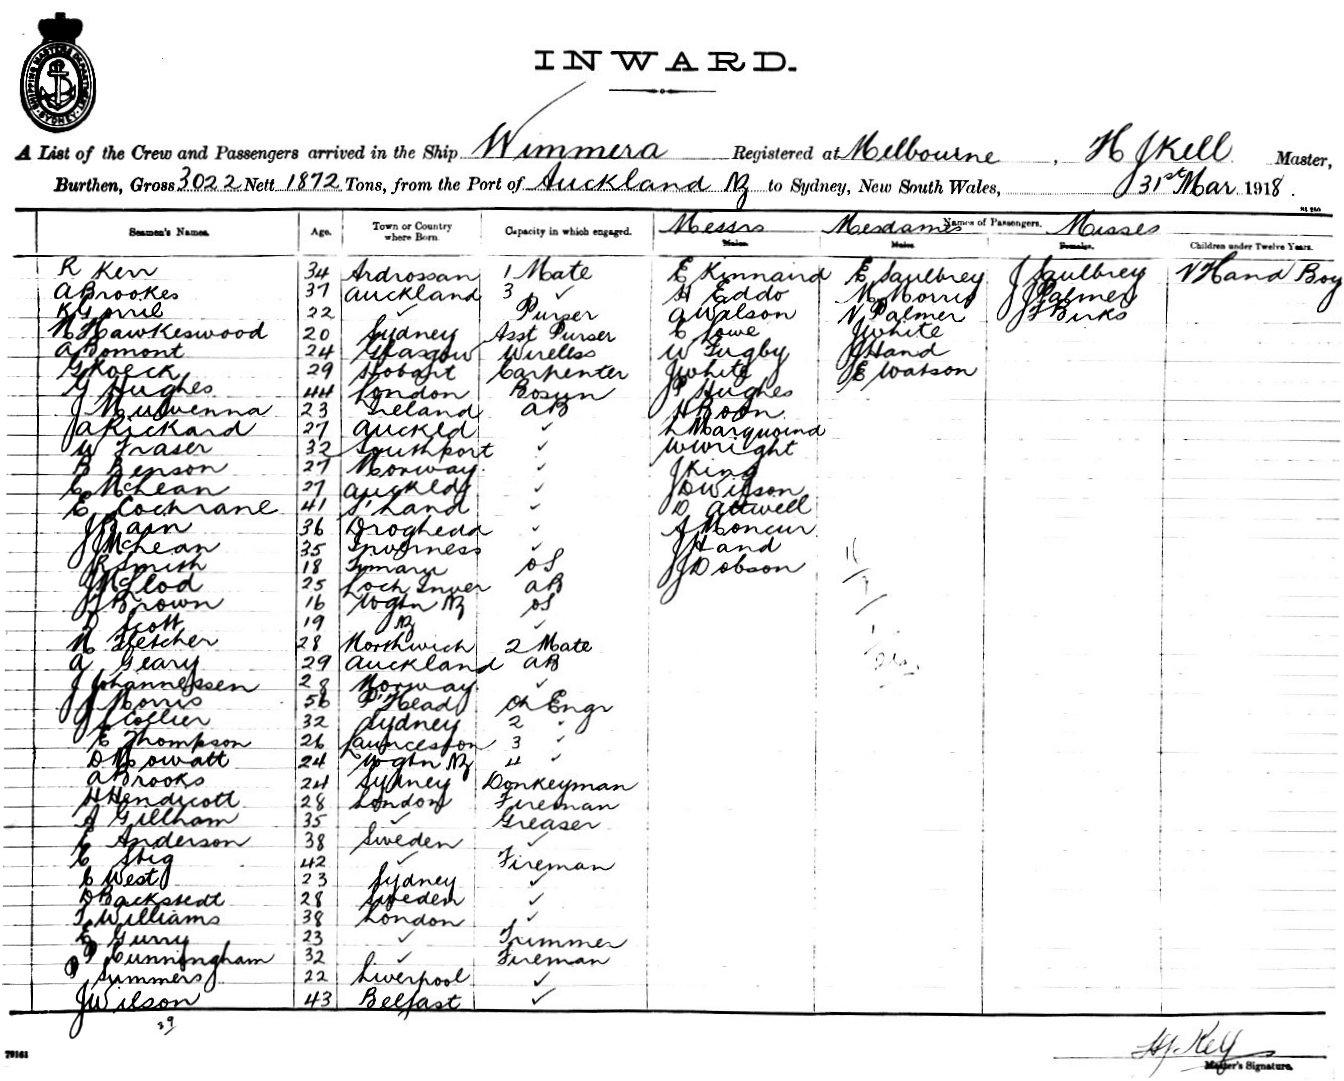 SHIPPING MASTERS DEPARTMENT SYDNEY
INWARD.
A List of the Crew and Passengers arrived in the Ship Wimmera Registered at Melbourne, H J Kell Master,
Burthen, Gross 3022 Nett 1872 Tons, from the Port of Auckland NZ to Sydney, New South Wales, 31st Mar 1918.
Seamen's Names. Age. Town or Country where Born. Capacity in which engaged. Names of Passengers.
Messrs Mesdames Misses
Males. Males. Females. Children under Twelve Years.
R Kerr 34 Ardrossan 1 Mate E Kinnaird E Saulbrey J Saulbrey N Hand Boy
A Brookes 37 Auckland 3 ✓ H Eddo M Morris J Palmer
K Gorrie 22 ✓ Purser A Walson N Palmer J F Birks
N Hawkeswood 20 Sydney Asst Purser C Lowe J White
A Bomont 24 Glasgow Wireless W Fugby J Hand
G Koeck 29 Hobart Carpenter J White E Watson
G Hughes 44 London Bosun J P Hughes
J Mulvenna 23 Ireland AB H Boon
J A Rickard 27 Auckld ✓ L Marquoind
W Fraser 32 Southport ✓ W Wright
B Benson 27 Norway ✓ J King
C McLean 27 Auckld ✓ J D Wilson
E Cochrane 41 S'Land ✓ D Attwell
J Bain 36 Drogheda ✓ A Moncur
J McLean 35 Inverness ✓ J Hand
R Smith 18 Timaru OS J J Dobson
J McLeod 25 Loch Inver AB
J Brown 16 Wgtn NZ OS
D Scott 19 NZ ✓
N Fletcher 28 Northwich 2 Mate
A Geary 29 Auckland AB
J Johannessen 28 Norway ✓
J J Morris 56 P'Head Ch Engr
J Collier 32 Sydney 2 ✓
E Thompson 26 Launceston 3 ✓
D Mowatt 24 Wgtn NZ 4 ✓
A Brooks 24 Sydney Donkeyman
H Hendicott 28 London Fireman
A Gillham 35 ✓ Greaser
E Anderson 38 Sweden ✓
E Stig 42 ✓ Fireman
C West 23 Sydney ✓
D Backstedt 28 Sweden ✓
T Williams 38 London ✓
E Gurry 23 ✓ Trimmer
P Cunningham 32 ✓ Fireman
P Summers 22 Liverpool ✓
J Wilson 43 Belfast ✓
39
H J Kell
79161 Master's Signature.